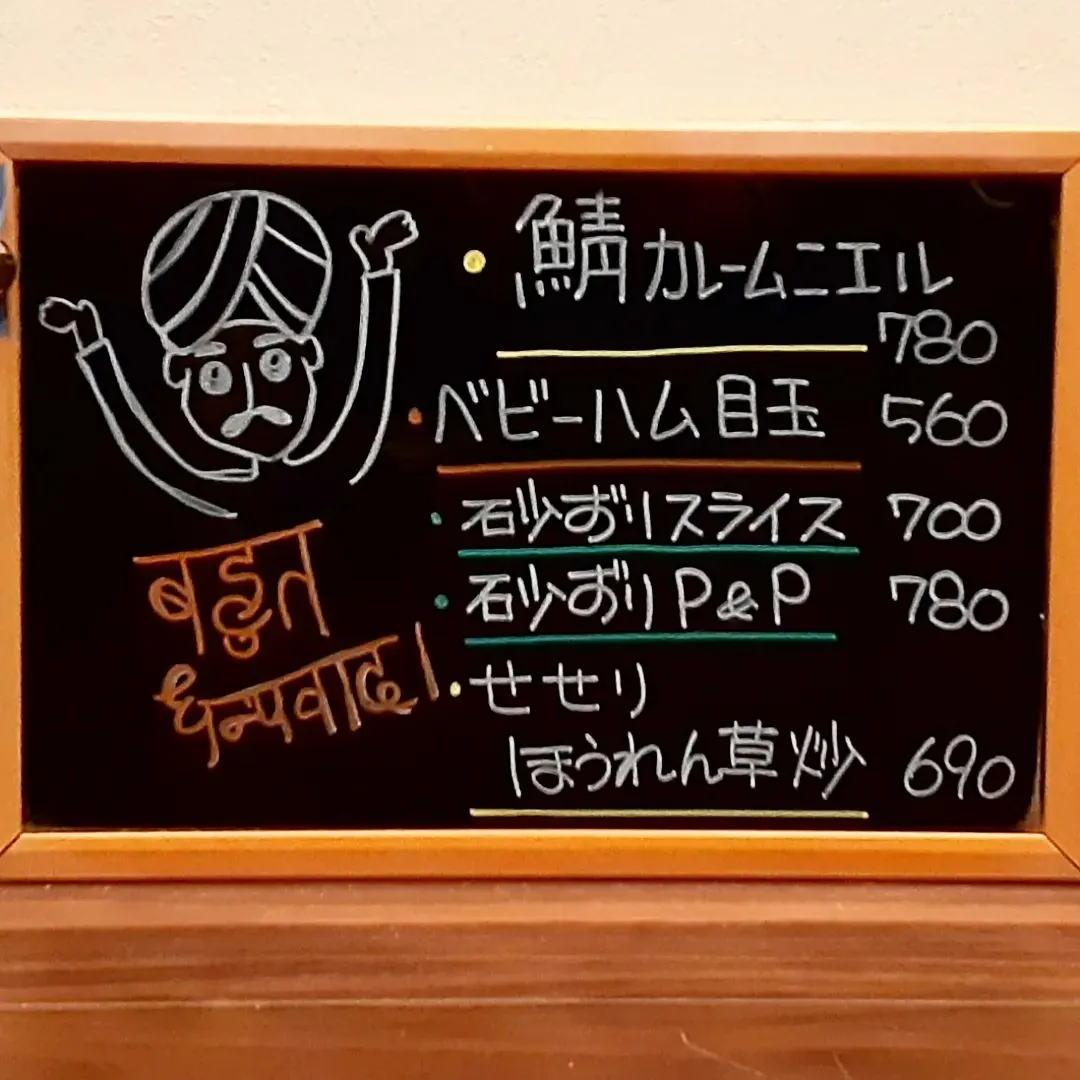 鯖カレームニエル
780
ベビーハム目玉 560
砂ずりスライス 700
砂ずりP&P 780
せせり
ほうれん草炒 690
बहुत
धन्यवाद।